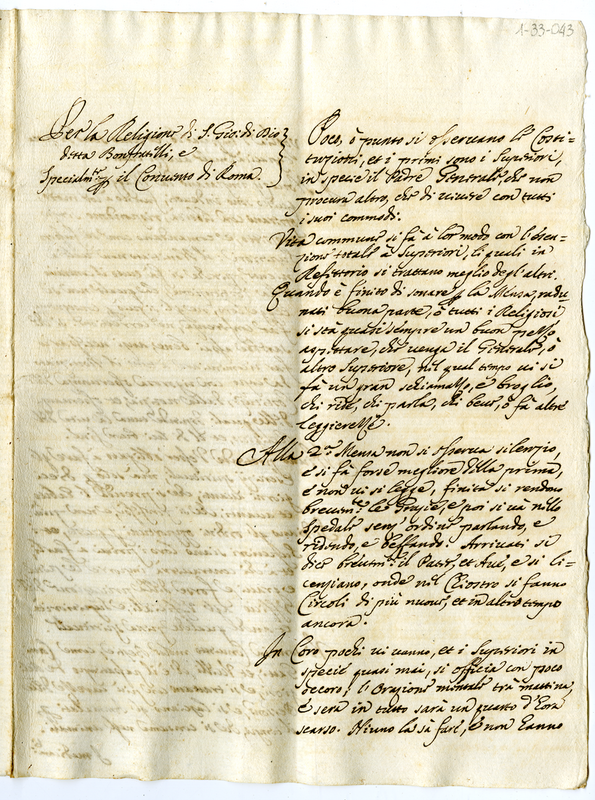 1-33-043
Per la Religione di S. Gio: di Dio
detta Bonfratelli, e
Specialm.te p il Convento di Roma.
Poco, ò punto si osservano le Costi-
tuzioni, et i primi sono i Superiori,
in specie il Padre Generale, che non
procura altro, che di vivere con tutti
i suoi commodi.
Vita commune si fà à lor modo con l'ecce-
zione totale à Superiori, li quali in
Refittorio si trattano meglio degl'altri.
Quando è finito di sonare p la Mensa, radu
nati buona parte, ò tutti i Religiosi
si stà quasi sempre un buon pezzo
aspettare, che venga il Generale, ò
altro Superiore, nel qual tempo vi si
fà un gran schiamazzo, e broglio,
chi ride, chi parla, chi beve, ò fà altre
leggierezze.
Alla 2.a Mensa non si osserva silenzio,
e si fà forse megliore della prima,
e non vi si legge, finita si rendono
brevem.te le Grazie, e poi si và nello
Spedale senz'ordine parlando, e
ridendo, e beffando. Arrivati si
dice brevem.te il Pater, et Ave, e si li-
cenziano, onde nel Chiostro si fanno
Circoli di più nuove, et in altro tempo
ancora.
In Coro pochi vi vanno, et i Superiori in
specie quasi mai, si officia con poco
decoro; l'Orazione mentale trà mattina,
e sera in tutto sarà un quarto d'Ora
scarso. Niuno la sà fare, e non hanno